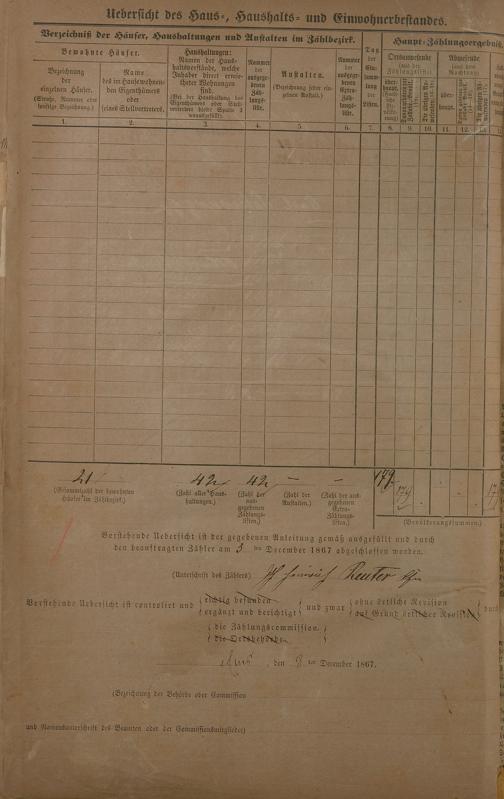 Uebersicht des Haus-, Haushalts- und Einwohnerbestandes.
Verzeichniß der Häuser, Haushaltungen und Anstalten im Zählbezirk.
Haupt-Zählungsergebniß
Bewohnte Häuser.
Bezeichnung
der
einzelnen Häuser.
(Straße, Nummer oder
sonstige Bezeichnung.)
Name
des im Hause wohnenden
den Eigenthümers
oder
seines Stellvertreters.
Haushaltungen:
Namen der Haus-
haltsvorstände, welche
Inhaber direct ermie-
theter Wohnungen
sind.
(Bei der Haushaltung des
Eigenthümers oder Stell-
vertreters bleibt Spalte 3
unausgefüllt.)
Nummer
der
ausgege-
benen
Zäh-
lungs-
liste.
Anstalten.
(Bezeichnung jeder ein-
zelnen Anstalt.)
Nummer
der
ausgege-
benen
Extra-
Zäh-
lungs-
liste.
Tag
der
Ein-
samm-
lung
der
Listen.
Ortsanwesende
(aus der
Zählungsliste)
Abwesende
(aus dem
Nachtrag)
über-
haupt.
1. 2. 3. 4. 5. 6. 7. 8. 9. 10. 11. 12. 13.
21 42 42 — — 179 179
(Gesammtzahl der bewohnten
Häuser im Zählbezirk.)
(Zahl aller Haus-
haltungen.)
(Zahl der
aus-
gegebenen
Zählungs-
listen.)
(Zahl der
Anstalten.)
(Zahl der aus-
gegebenen
Extra-
Zählungs-
listen.)
(Bevölkerungssummen.)
Vorstehende Uebersicht ist der gegebenen Anleitung gemäß ausgefüllt und durch
den beauftragten Zähler am 5 ten December 1867 abgeschlossen worden.
(Unterschrift des Zählers) Heinrich Reuter
Vorstehende Uebersicht ist controlirt und richtig befunden
ergänzt und berichtigt
und zwar ohne örtliche Revision
auf Grund örtlicher Revision
durch
die Zählungscommission
die Ortsbehörde
, den 8 ten December 1867.
(Bezeichnung der Behörde oder Commission
und Namensunterschrift des Beamten oder der Commissionsmitglieder)